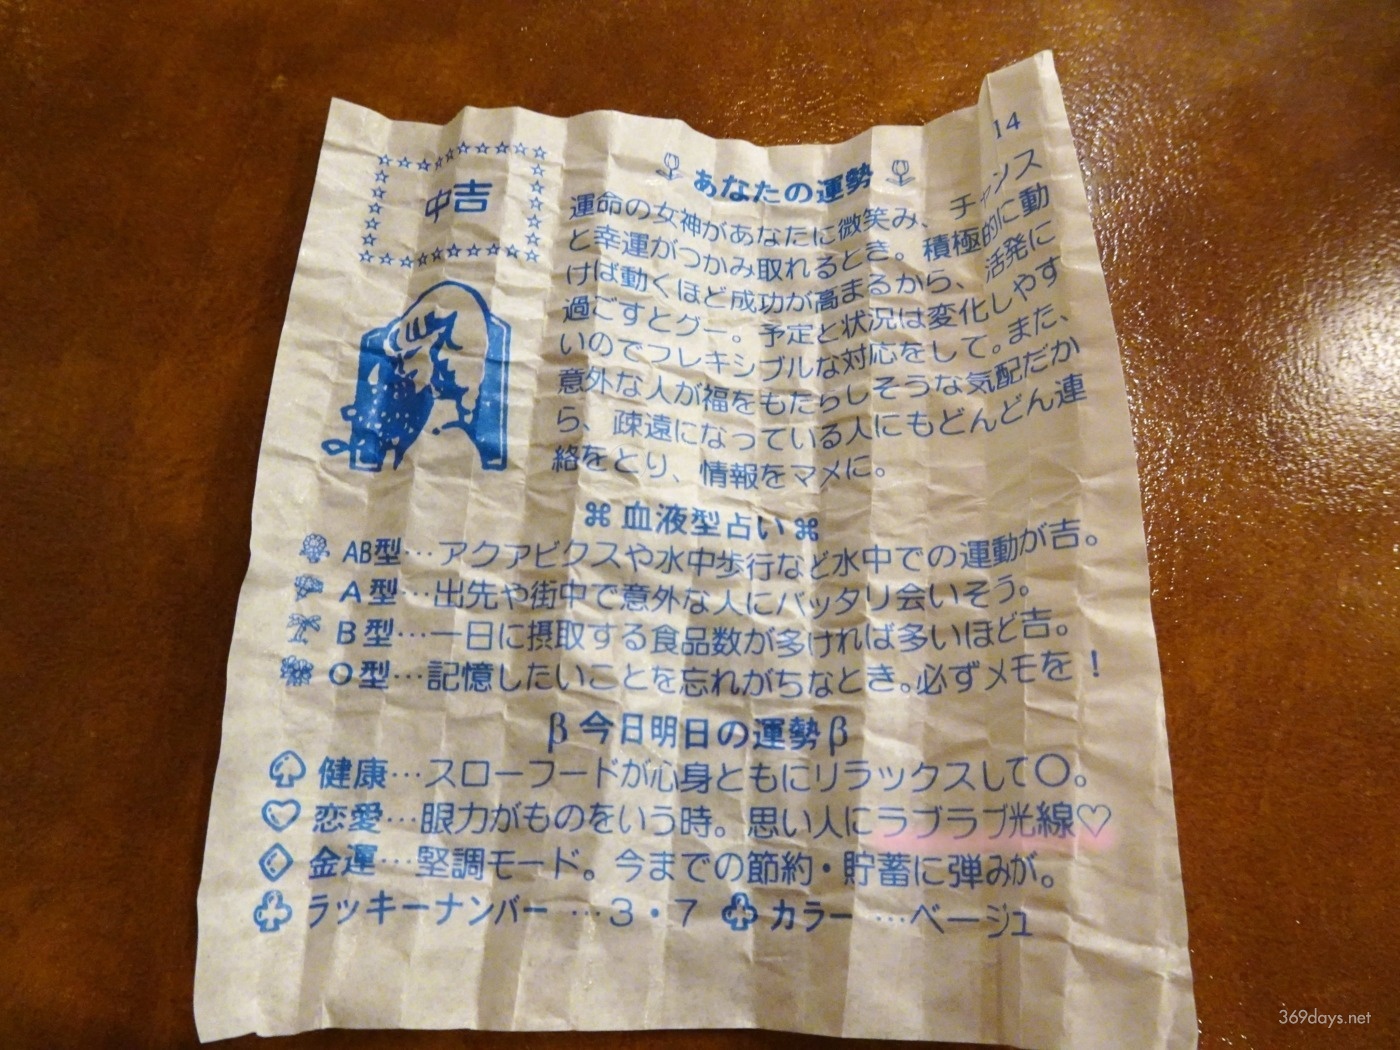 14
中吉
あなたの運勢
運命の女神があなたに微笑み、チャンス
と幸運がつかみ取れるとき。積極的に動
けば動くほど成功が高まるから、活発に
過ごすとグー。予定と状況は変化しやす
いのでフレキシブルな対応をして。また、
意外な人が福をもたらしそうな気配だか
ら、疎遠になっている人にもどんどん連
絡をとり、情報をマメに。
⌘ 血液型占い ⌘
AB型…アクアビクスや水中歩行など水中での運動が吉。
A型…出先や街中で意外な人にバッタリ会いそう。
B型…一日に摂取する食品数が多ければ多いほど吉。
O型…記憶したいことを忘れがちなとき。必ずメモを！
β 今日明日の運勢 β
健康…スローフードが心身ともにリラックスして〇。
恋愛…眼力がものをいう時。思い人にラブラブ光線♡
金運…堅調モード。今までの節約・貯蓄に弾みが。
ラッキーナンバー…3・7 カラー…ベージュ
369days.net